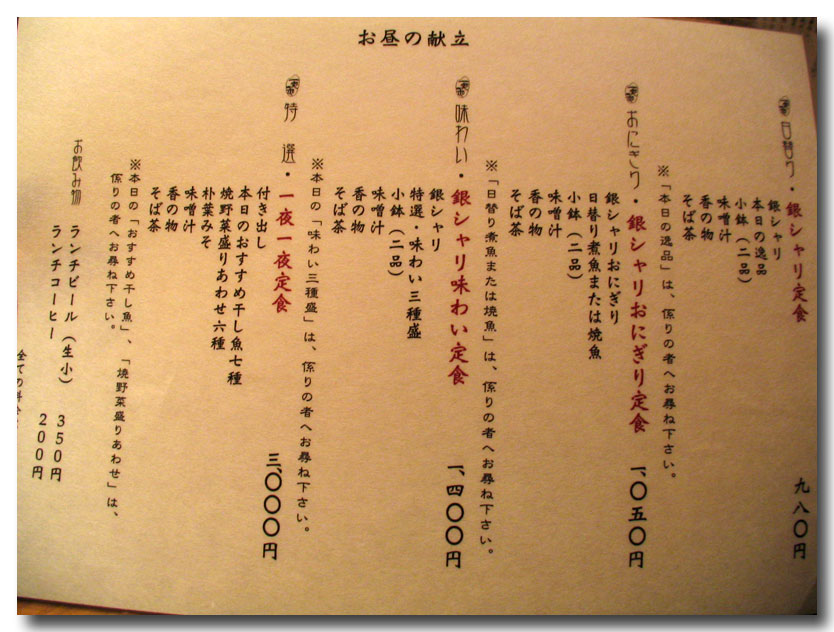 お昼の献立
日替り・銀シャリ定食 九八〇円
銀シャリ
本日の逸品
小鉢（二品）
味噌汁
香の物
そば茶
※「本日の逸品」は、係りの者へお尋ね下さい。
おにぎり・銀シャリおにぎり定食 一、〇五〇円
銀シャリおにぎり
日替り煮魚または焼魚
小鉢（二品）
味噌汁
香の物
そば茶
※「日替り煮魚または焼魚」は、係りの者へお尋ね下さい。
味わい・銀シャリ味わい定食 一、四〇〇円
銀シャリ
特選・味わい三種盛
小鉢（二品）
味噌汁
香の物
そば茶
※本日の「味わい三種盛」は、係りの者へお尋ね下さい。
特選・一夜一夜定食 三、〇〇〇円
付き出し
本日のおすすめ干し魚七種
焼野菜盛りあわせ六種
朴葉みそ
味噌汁
香の物
そば茶
※本日の「おすすめ干し魚」、「焼野菜盛りあわせ」は、
係りの者へお尋ね下さい。
お飲み物
ランチビール（生小） 350円
ランチコーヒー 200円
全ての料